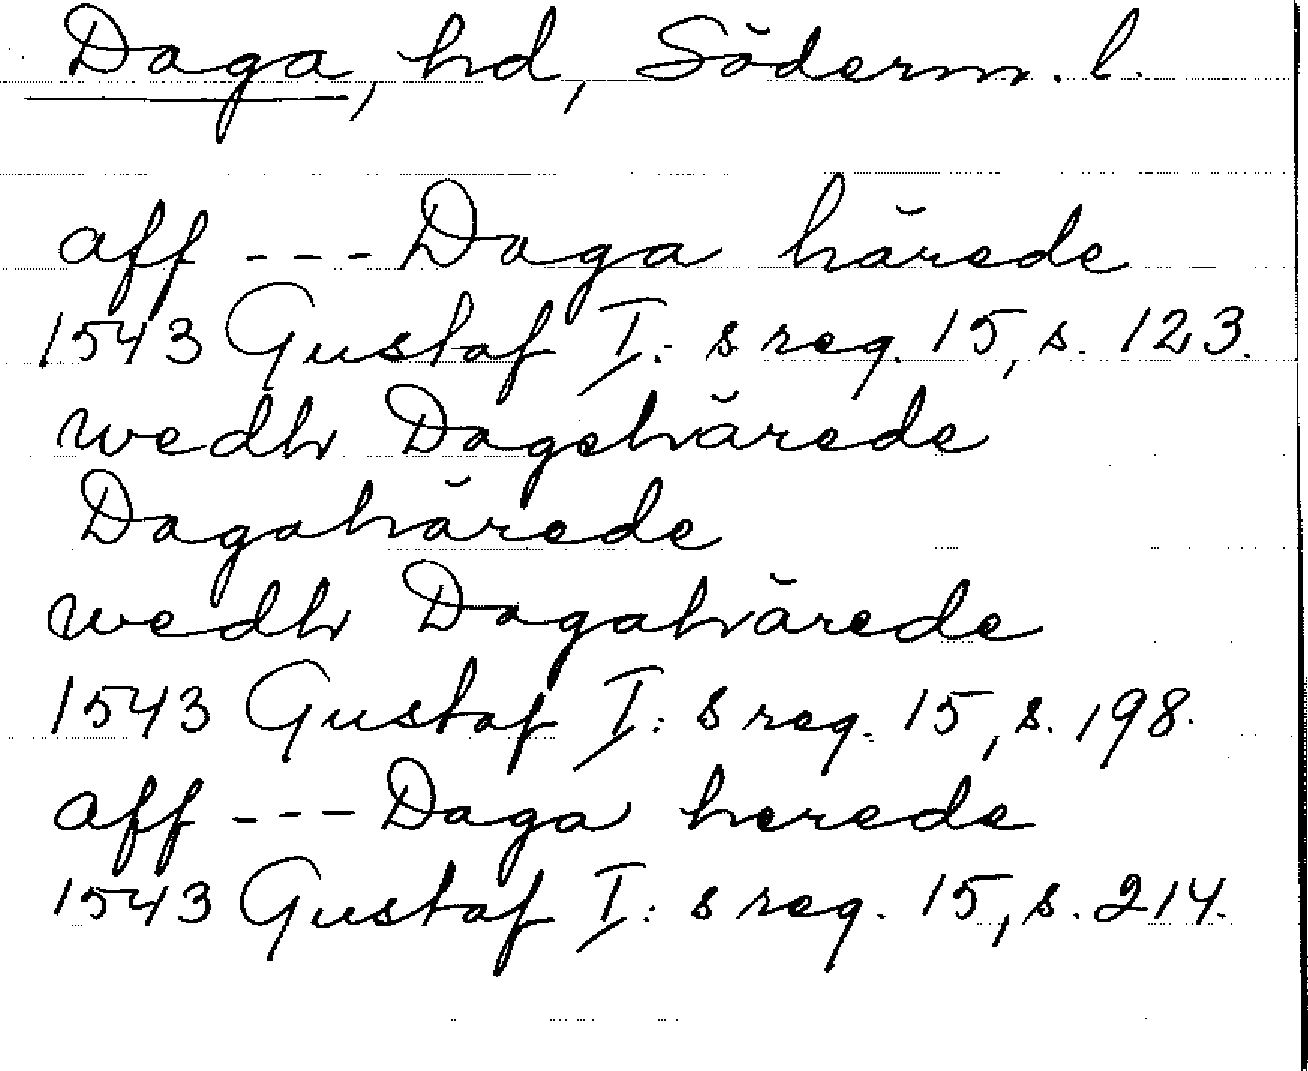 Daga, hd, Söderm. l.
aff --- Daga härede
1543 Gustaf I:s reg. 15, s. 123.
wedh Dagehärede
Dagahärede
wedh Dagahärede
1543 Gustaf I:s reg. 15, s. 198.
aff --- Daga herede
1543 Gustaf I:s reg. 15, s. 214.